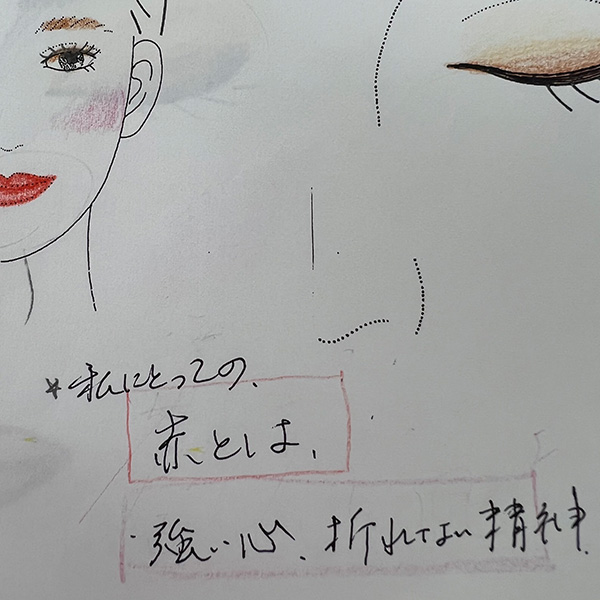 *私にとっての、
赤とは、
・強い心、折れない精神